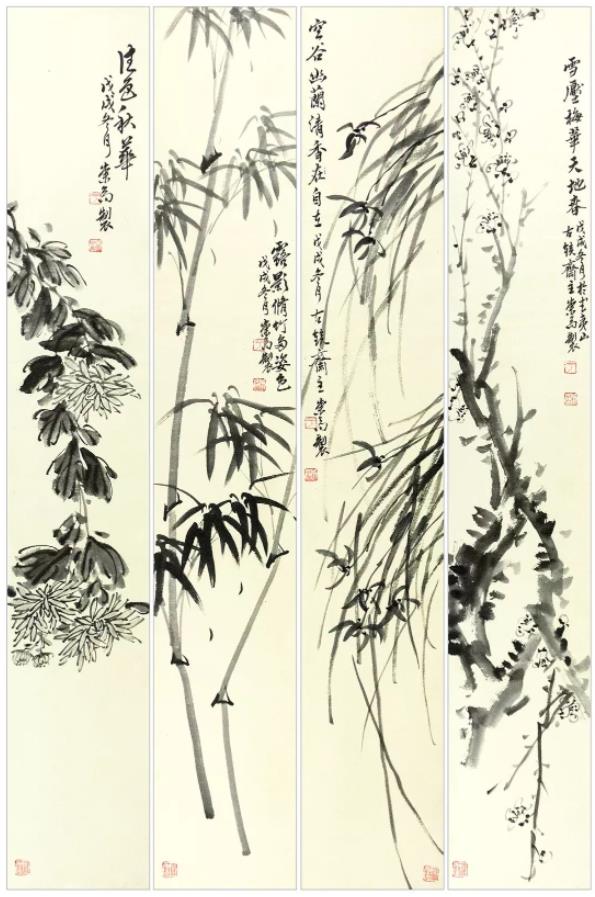 雪壓梅華天地春
戊戌冬月於武夷山
古齋主崇高製
空谷幽蘭清香在自在戊戌冬月古齋主崇高製
露影脩竹多姿色
戊戌冬月崇高製
佳色秋華
戊戌冬月崇高製